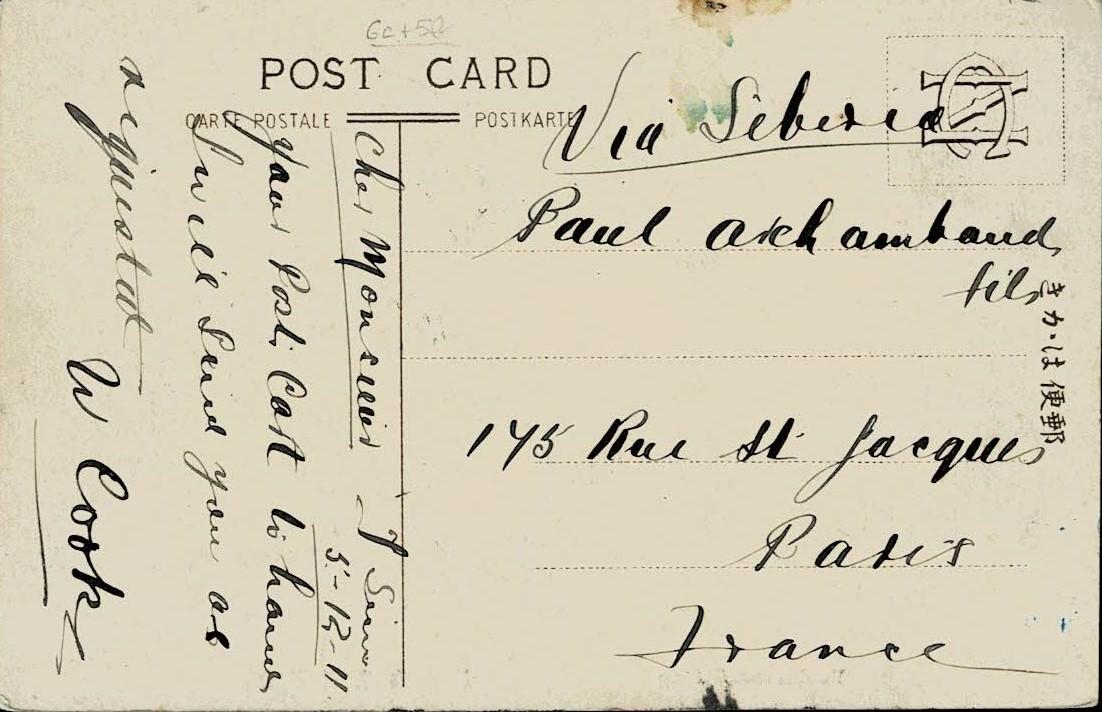 6c+5
POST CARD
CARTE POSTALE
POSTKARTE
Via Siberia
Paul Archambaud
fils
175 Rue St Jacques
Paris
France
きかは便郵
Cher Monsieur
5-12-11
Your Post Cart to hand
I will Send you as
requested
W Cook